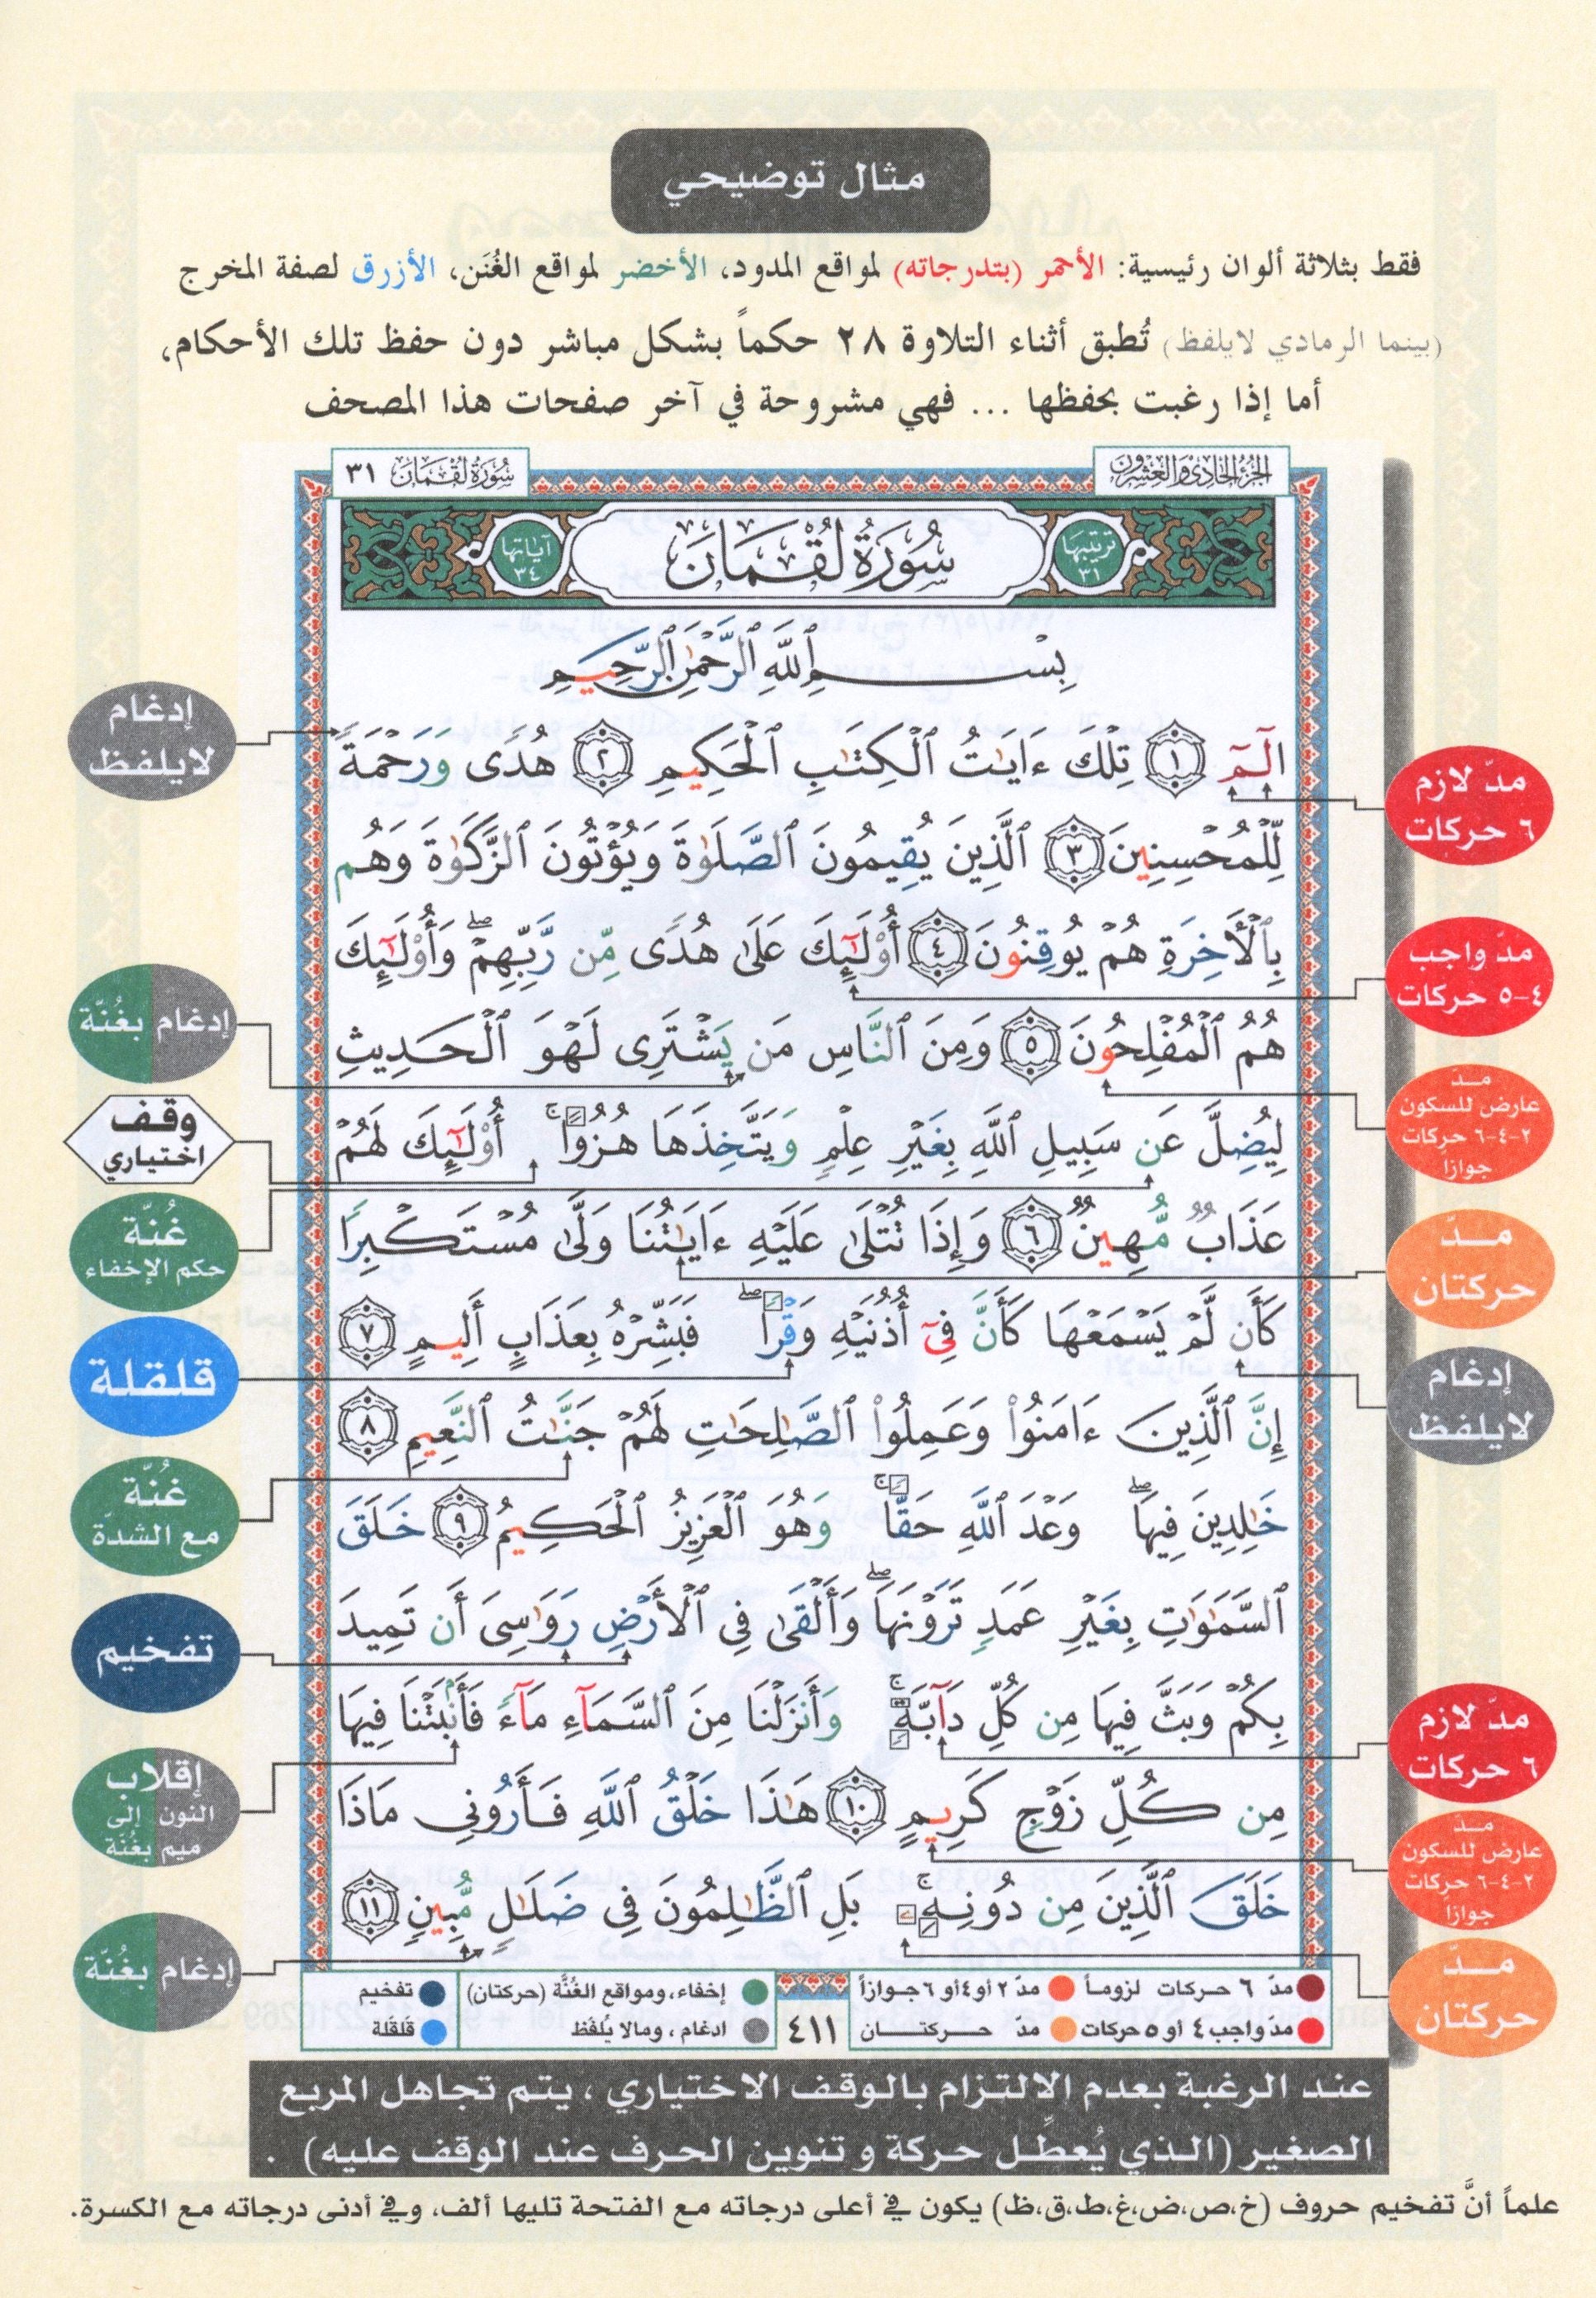 مثال توضيحي
فقط بثلاثة ألوان رئيسية: الأحمر (بتدرجاته) لمواقع المدود، الأخضر لمواقع الغُنَن، الأزرق لصفة المخرج
(بينما الرمادي لايلفظ) تُطبق أثناء التلاوة ٢٨ حكماً بشكل مباشر دون حفظ تلك الأحكام،
أما إذا رغبت بحفظها ... فهي مشروحة في آخر صفحات هذا المصحف
الجزء الحادي والعشرون
سورة لقمان ٣١
ترتيبها ٣١
سُورَةُ لُقْمَان
آياتها ٣٤
بِسْمِ ٱللَّهِ ٱلرَّحْمَٰنِ ٱلرَّحِيمِ
الٓمٓ ١ تِلْكَ ءَايَٰتُ ٱلْكِتَٰبِ ٱلْحَكِيمِ ٢ هُدًى وَرَحْمَةً
لِّلْمُحْسِنِينَ ٣ ٱلَّذِينَ يُقِيمُونَ ٱلصَّلَوٰةَ وَيُؤْتُونَ ٱلزَّكَوٰةَ وَهُم
بِٱلْأَخِرَةِ هُمْ يُوقِنُونَ ٤ أُوْلَٰٓئِكَ عَلَىٰ هُدًى مِّن رَّبِّهِمْ ۖ وَأُوْلَٰٓئِكَ
هُمُ ٱلْمُفْلِحُونَ ٥ وَمِنَ ٱلنَّاسِ مَن يَشْتَرِى لَهْوَ ٱلْحَدِيثِ
لِيُضِلَّ عَن سَبِيلِ ٱللَّهِ بِغَيْرِ عِلْمٍ وَيَتَّخِذَهَا هُزُوًا ۚ أُوْلَٰٓئِكَ لَهُمْ
عَذَابٌ مُّهِينٌ ٦ وَإِذَا تُتْلَىٰ عَلَيْهِ ءَايَٰتُنَا وَلَّىٰ مُسْتَكْبِرًا
كَأَن لَّمْ يَسْمَعْهَا كَأَنَّ فِىٓ أُذُنَيْهِ وَقْرًا ۖ فَبَشِّرْهُ بِعَذَابٍ أَلِيمٍ ٧
إِنَّ ٱلَّذِينَ ءَامَنُوا۟ وَعَمِلُوا۟ ٱلصَّٰلِحَٰتِ لَهُمْ جَنَّٰتُ ٱلنَّعِيمِ ٨
خَٰلِدِينَ فِيهَا ۖ وَعْدَ ٱللَّهِ حَقًّا ۚ وَهُوَ ٱلْعَزِيزُ ٱلْحَكِيمُ ٩ خَلَقَ
ٱلسَّمَٰوَٰتِ بِغَيْرِ عَمَدٍ تَرَوْنَهَا ۖ وَأَلْقَىٰ فِى ٱلْأَرْضِ رَوَٰسِىَ أَن تَمِيدَ
بِكُمْ وَبَثَّ فِيهَا مِن كُلِّ دَآبَّةٍ ۚ وَأَنزَلْنَا مِنَ ٱلسَّمَآءِ مَآءً فَأَنۢبَتْنَا فِيهَا
مِن كُلِّ زَوْجٍ كَرِيمٍ ١٠ هَٰذَا خَلْقُ ٱللَّهِ فَأَرُونِى مَاذَا
خَلَقَ ٱلَّذِينَ مِن دُونِهِ ۚ بَلِ ٱلظَّٰلِمُونَ فِى ضَلَٰلٍ مُّبِينٍ ١١
مدّ لازم
٦ حركات
مدّ واجب
٤-٥ حركات
مدّ
عارض للسكون
٢-٤-٦ حركات
جوازاً
مدّ
حركتان
إدغام
لايلفظ
مدّ لازم
٦ حركات
مدّ
عارض للسكون
٢-٤-٦ حركات
جوازاً
مدّ
حركتان
إدغام
لايلفظ
إدغام بغُنّة
وقف
اختياري
غُنّة
حكم الإخفاء
قلقلة
غُنّة
مع الشدّة
تفخيم
إقلاب
النون إلى
ميم بغُنّة
إدغام بغُنّة
مدّ ٦ حركات لزوماً
مدّ ٢ أو٤ أو ٦ جوازاً
مدّ واجب ٤ أو ٥ حركات
مدّ حركتان
٤١١
إخفاء، ومواقع الغُنَّة (حركتان)
تفخيم
ادغام ، ومالا يُلفَظ
قلقلة
عند الرغبة بعدم الالتزام بالوقف الاختياري ، يتم تجاهل المربع
الصغير (الذي يُعطِّل حركة و تنوين الحرف عند الوقف عليه) .
علماً أنَّ تفخيم حروف (خ،ص،ض،غ،ط،ق،ظ) يكون في أعلى درجاته مع الفتحة تليها ألف، وفي أدنى درجاته مع الكسرة.